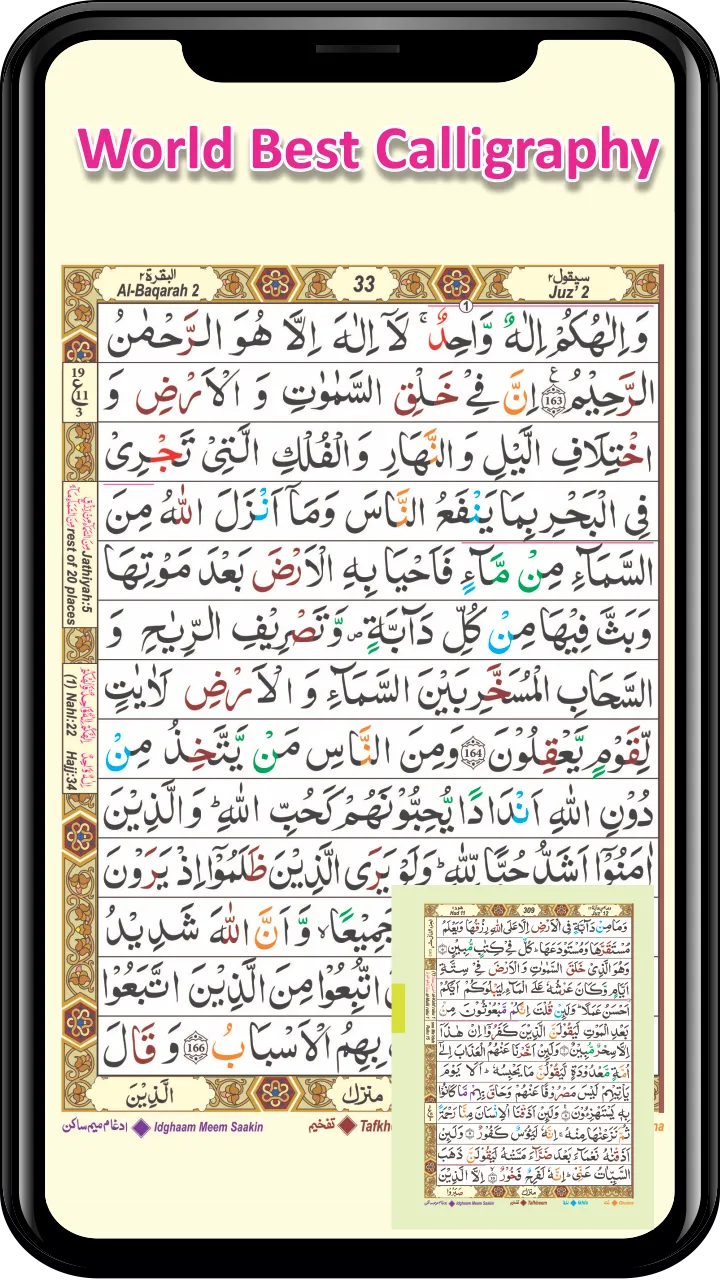 World Best Calligraphy
البقرة٢
Al-Baqarah 2
33
سيقول٢
Juz' 2
1
وَاِلٰهُكُمْ اِلٰهٌ وَّاحِدٌ ۚ لَآ اِلٰهَ اِلَّا هُوَ الرَّحْمٰنُ
الرَّحِيْمُ ۧ 163 اِنَّ فِيْ خَلْقِ السَّمٰوٰتِ وَ الْاَرْضِ وَ
اخْتِلَافِ الَّيْلِ وَالنَّهَارِ وَالْفُلْكِ الَّتِيْ تَجْرِيْ
فِي الْبَحْرِ بِمَا يَنْفَعُ النَّاسَ وَمَآ اَنْزَلَ اللّٰهُ مِنَ
السَّمَآءِ مِنْ مَّآءٍ فَاَحْيَا بِهِ الْاَرْضَ بَعْدَ مَوْتِهَا
وَبَثَّ فِيْهَا مِنْ كُلِّ دَآبَّةٍ ۪ وَّتَصْرِيْفِ الرِّيٰحِ وَ
السَّحَابِ الْمُسَخَّرِ بَيْنَ السَّمَآءِ وَ الْاَرْضِ لَاٰيٰتٍ
لِّقَوْمٍ يَّعْقِلُوْنَ 164 وَمِنَ النَّاسِ مَنْ يَّتَّخِذُ مِنْ
دُوْنِ اللّٰهِ اَنْدَادًا يُّحِبُّوْنَهُمْ كَحُبِّ اللّٰهِ ؕ وَالَّذِيْنَ
اٰمَنُوْٓا اَشَدُّ حُبًّا لِّلّٰهِ ؕ وَلَوْ يَرَى الَّذِيْنَ ظَلَمُوْٓا اِذْ يَرَوْنَ
جَمِيْعًا ۙ وَّ اَنَّ اللّٰهَ شَدِيْدُ
اتُّبِعُوْا مِنَ الَّذِيْنَ اتَّبَعُوْا
بِهِمُ الْاَسْبَابُ 166 وَ قَالَ
19
ع
11
3
Jathiyah:5
rest of 20 places
(1) Nahl:22 Hajj:34
منزل
الَّذِيْنَ
ادغام میم ساکن Idghaam Meem Saakin
تفخیم Tafkh
هود١١
Hud 11
309
Juz' 12
وَمَا مِنْ دَآبَّةٍ فِي الْاَرْضِ اِلَّا عَلَى اللّٰهِ رِزْقُهَا وَيَعْلَمُ
مُسْتَقَرَّهَا وَمُسْتَوْدَعَهَا ؕ كُلٌّ فِيْ كِتٰبٍ مُّبِيْنٍ
وَهُوَ الَّذِيْ خَلَقَ السَّمٰوٰتِ وَالْاَرْضَ فِيْ سِتَّةِ
اَيَّامٍ وَّكَانَ عَرْشُهٗ عَلَى الْمَآءِ لِيَبْلُوَكُمْ اَيُّكُمْ
اَحْسَنُ عَمَلًا ؕ وَلَىِٕنْ قُلْتَ اِنَّكُمْ مَّبْعُوْثُوْنَ مِنْ
بَعْدِ الْمَوْتِ لَيَقُوْلَنَّ الَّذِيْنَ كَفَرُوْٓا اِنْ هٰذَآ
اِلَّا سِحْرٌ مُّبِيْنٌ وَلَىِٕنْ اَخَّرْنَا عَنْهُمُ الْعَذَابَ اِلٰٓى
اُمَّةٍ مَّعْدُوْدَةٍ لَّيَقُوْلُنَّ مَا يَحْبِسُهٗ ؕ اَلَا يَوْمَ
يَاْتِيْهِمْ لَيْسَ مَصْرُوْفًا عَنْهُمْ وَحَاقَ بِهِمْ مَّا كَانُوْا
بِهٖ يَسْتَهْزِءُوْنَ وَلَىِٕنْ اَذَقْنَا الْاِنْسَانَ مِنَّا رَحْمَةً
ثُمَّ نَزَعْنٰهَا مِنْهُ ۚ اِنَّهٗ لَيَـُٔوْسٌ كَفُوْرٌ وَلَىِٕنْ
اَذَقْنٰهُ نَعْمَآءَ بَعْدَ ضَرَّآءَ مَسَّتْهُ لَيَقُوْلَنَّ ذَهَبَ
السَّيِّاٰتُ عَنِّيْ ؕ اِنَّهٗ لَفَرِحٌ فَخُوْرٌ اِلَّا الَّذِيْنَ
منزل
صَبَرُوْا
Idghaam Meem Saakin
Tafkheem